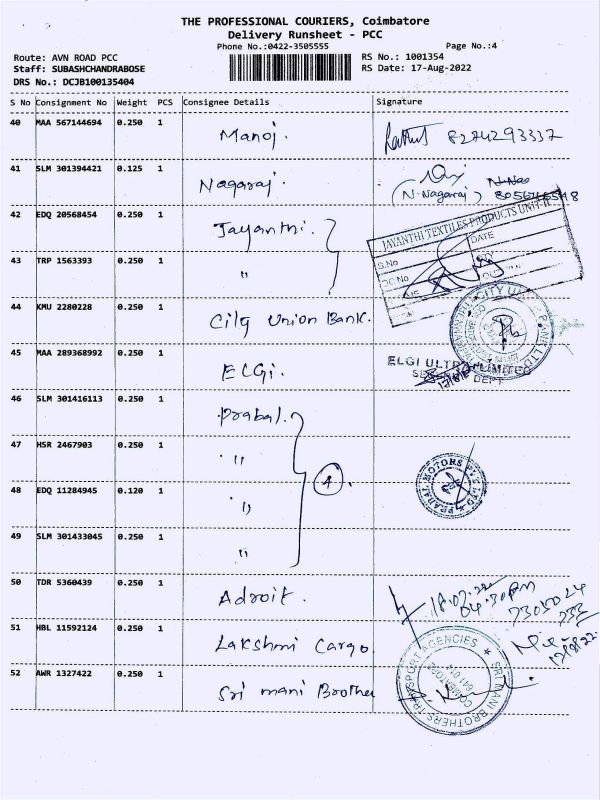 THE PROFESSIONAL COURIERS, Coimbatore
Delivery Runsheet - PCC
Phone No.:0422-3505555 Page No.:4
Route: AVN ROAD PCC RS No.: 1001354
Staff: SUBASHCHANDRABOSE RS Date: 17-Aug-2022
DRS No.: DCJB100135404
S No Consignment No Weight PCS Consignee Details Signature
40 MAA 567144694 0.250 1 Manoj. 8274293337
41 SLM 301394421 0.125 1 Nagaraj.
(N. Nagaraj)
42 EDQ 20568454 0.250 1 Jayanthi.
JAYANTHI TEXTILES PRODUCTS UNIT II
S.No DATE
43 TRP 1563393 0.250 1 "
44 KMU 2280228 0.250 1 City Union Bank.
45 MAA 289368992 0.250 1 ELGi.
ELGI ULTRA LIMITED
DEPT
46 SLM 301416113 0.250 1 Prabal.
47 HSR 2467903 0.250 1 "
4
48 EDQ 11284945 0.120 1 "
49 SLM 301433045 0.250 1 "
50 TDR 5360439 0.250 1 Adroit.
04.30PM
51 HBL 11592124 0.250 1 Lakshmi Cargo
52 AWR 1327422 0.250 1 Sri mani Brother
SRI MANI BROTHERS TRANSPORT AGENCIES